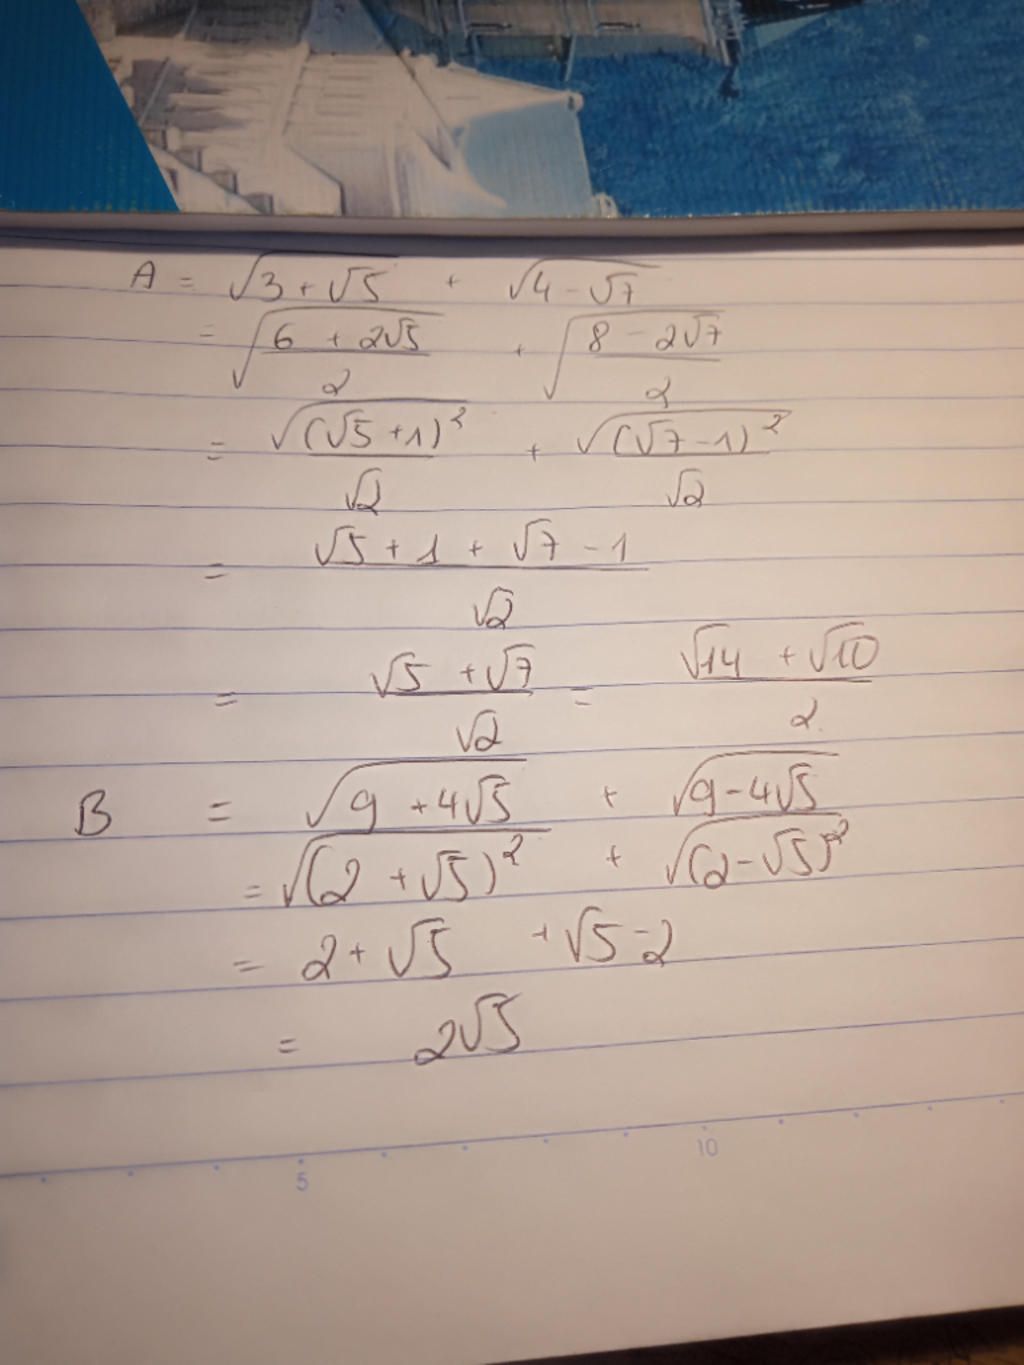 A = √(3 + √5) + √(4 - √7)
= √((6 + 2√5)/2) + √((8 - 2√7)/2)
= √((√5 + 1)²)/√2 + √((√7 - 1)²)/√2
= (√5 + 1 + √7 - 1)/√2
= (√5 + √7)/√2 = (√14 + √10)/2
B = √(9 + 4√5) + √(9 - 4√5)
= √((2 + √5)²) + √((2 - √5)²)
= 2 + √5 + √5 - 2
= 2√5
5 10